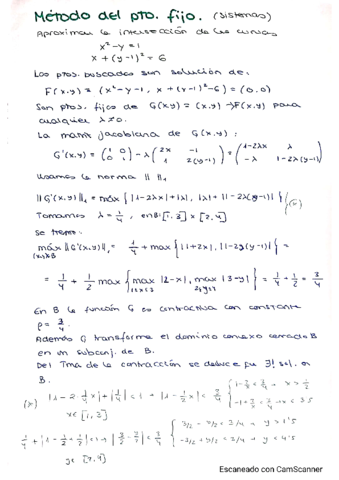 Método del pto. fijo. (sistemas)
Aproximar la intersección de las curvas
x²-y=1
x+(y-1)²=6
Los ptos. buscados son solución de:
F(x,y) = (x²-y-1, x+(y-1)²-6) = (0,0)
Son ptos. fijos de G(x,y) = (x,y)-λF(x,y) para
cualquier λ≠0.
La matriz jacobiana de G(x,y):
G'(x,y) = (1 0; 0 1) - λ(2x -1; 1 2(y-1)) = (1-2λx λ; -λ 1-2λ(y-1))
Usamos la norma || ||₁
||G'(x,y)||₁ = máx {|1-2λx|+|λ|, |λ|+|1-2λ(y-1)|} (*)
Tomamos λ=1/4, en B:[1,3]x[2,4]
Se tiene:
= 1/4 + 1/2 max { max |2-x|, max |3-y| } = 1/4 + 1/2 = 3/4
En B la función G es contractiva con constante
ρ = 3/4.
Además G transforma el dominio convexo cerrado B
en un subconj. de B.
Del Tma de la contracción se deduce que ∃! sol. en
B.
x∈[1,3]
y∈[2,4]
Escaneado con CamScanner